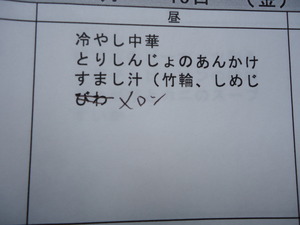 (金)
昼
冷やし中華
とりしんじょのあんかけ
すまし汁(竹輪、しめじ
びわ メロン